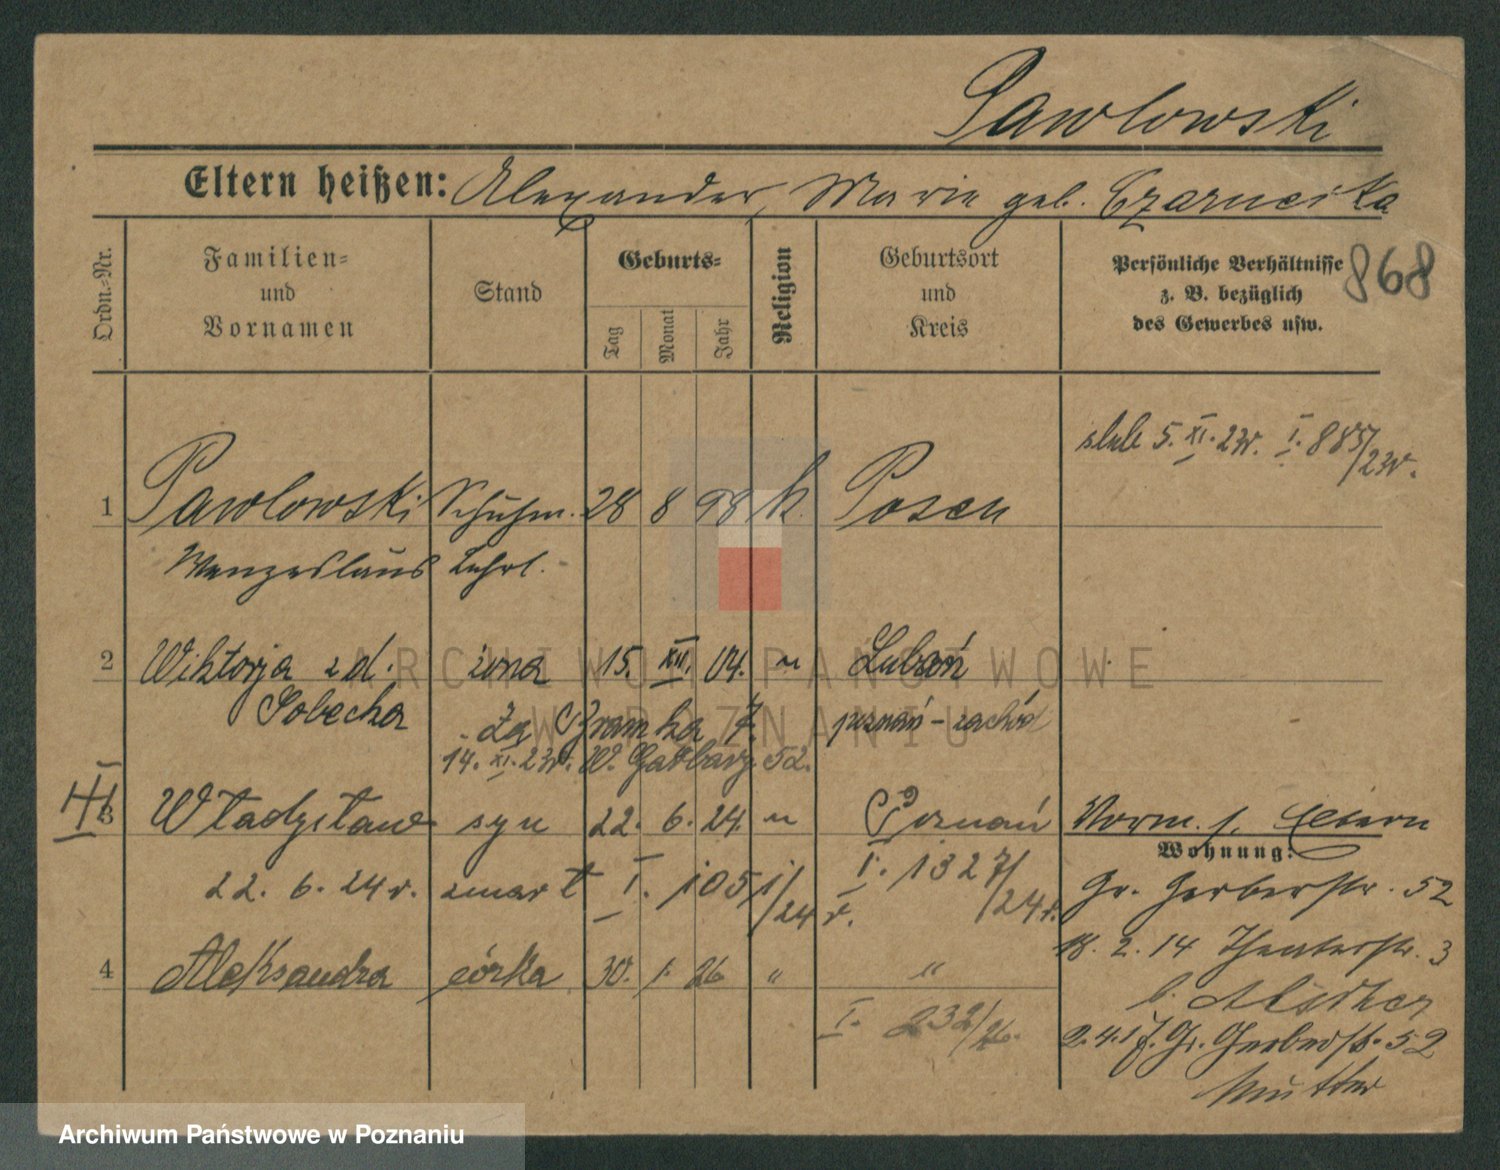 Pawlowski
Eltern heißen: Alexander, Marie geb. Czarnecka
Ordn.-Nr.
Familien- und Vornamen
Stand
Geburts-
Tag
Monat
Jahr
Religion
Geburtsort und Kreis
Persönliche Verhältnisse z. B. bezüglich des Gewerbes usw.
868
slub 5. XI. 23r. I. 885/23r.
1 Pawlowski Schuhm. 28 8 98 k. Posen
Wenzeslaus Lehrl.
2 Wiktorja z d. żona 15. XII. 04. " Luboń
Sobecka Za Bramką 7. poznań-zachód
14. XI. 23r. W. Garbary 52.
III
3 Władysław syn 22. 6. 24. " Poznań Vorm. s. Eltern
Wohnung:
22. 6. 24r. zmarł I. 1051/24 r. I. 1327/24r. Gr. Gerberstr. 52
18. 2. 14 Theaterstr. 3
4 Aleksandra córka 30. 1. 26 " "
b.
I. 232/26. 2.4.17. Gr. Gerberstr. 52
Mutter
ARCHIWUM PAŃSTWOWE
W POZNANIU
Archiwum Państwowe w Poznaniu